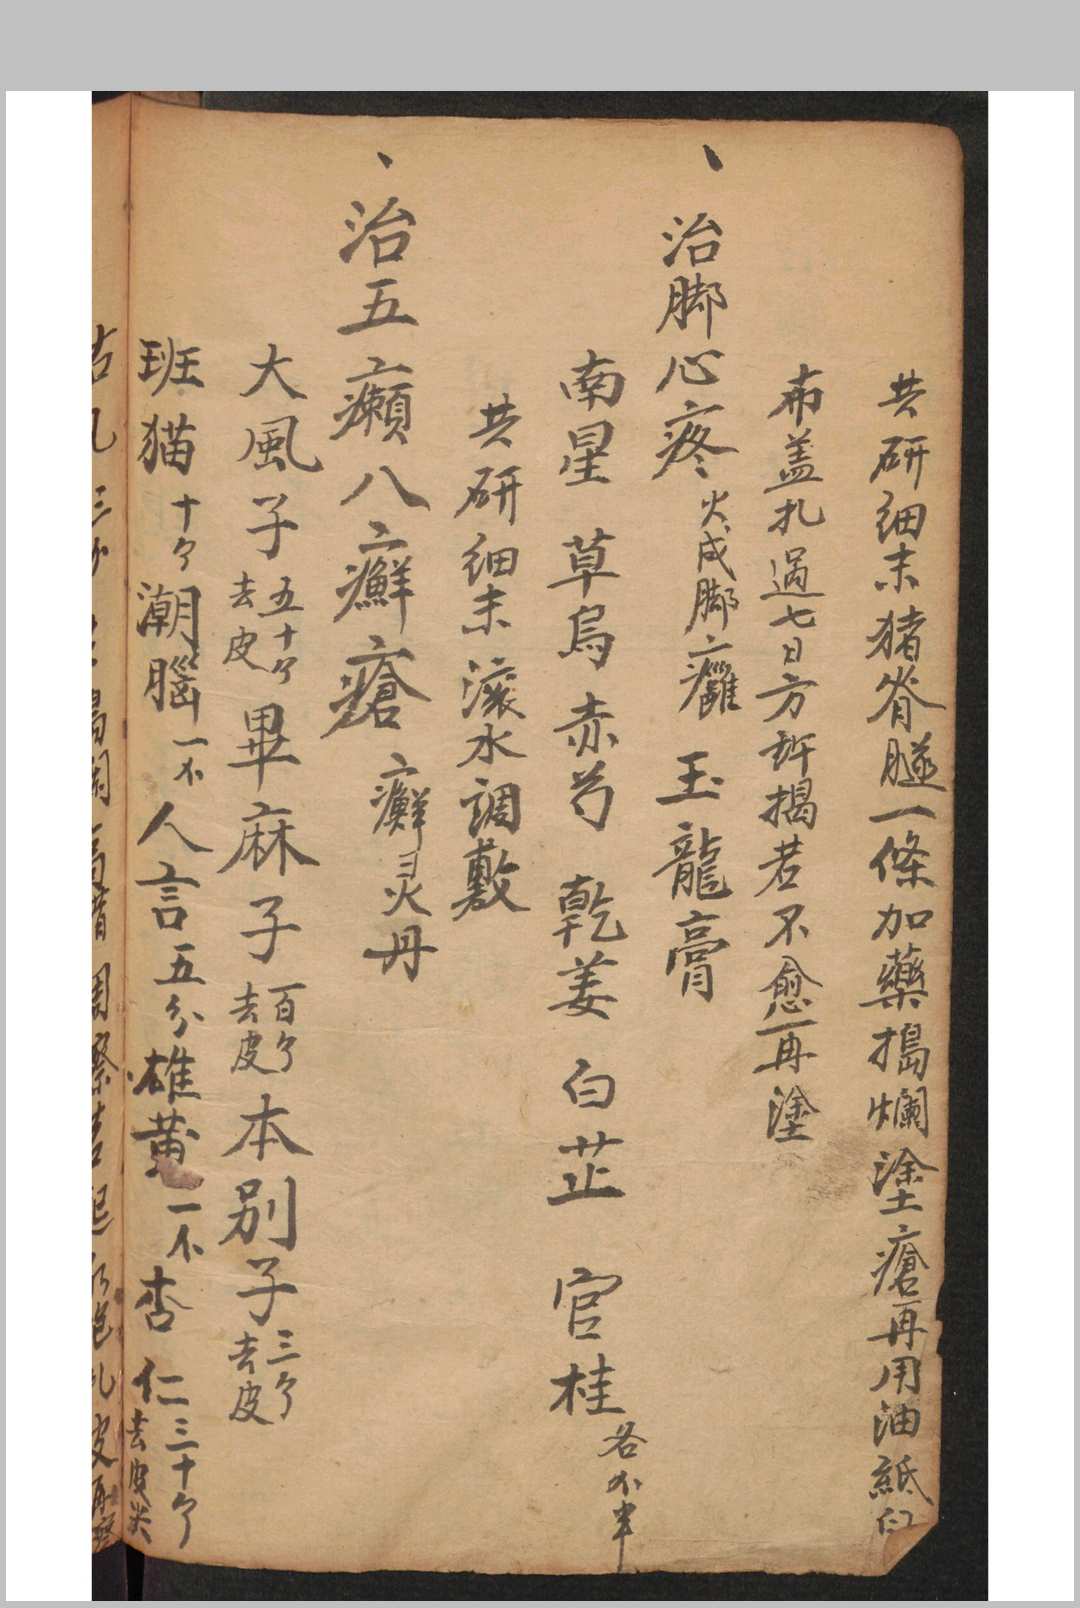 共研細末猪脊膸一條加藥搗爛塗瘡再用油紙白
布盖扎過七日方許揭若不愈再塗
、治脚心疼 火成脚癰 玉龍膏
南星 草烏 赤芍 乾姜 白芷 官桂 各
共研細末滚水調敷
、治五癩八癬瘡 癬灵丹
大風子 五十个去皮 畢麻子 百个去皮 本别子 三个去皮
班猫 十个 潮腦 一不 人言 五分 雄黄 一不 杏仁 三十个去皮尖